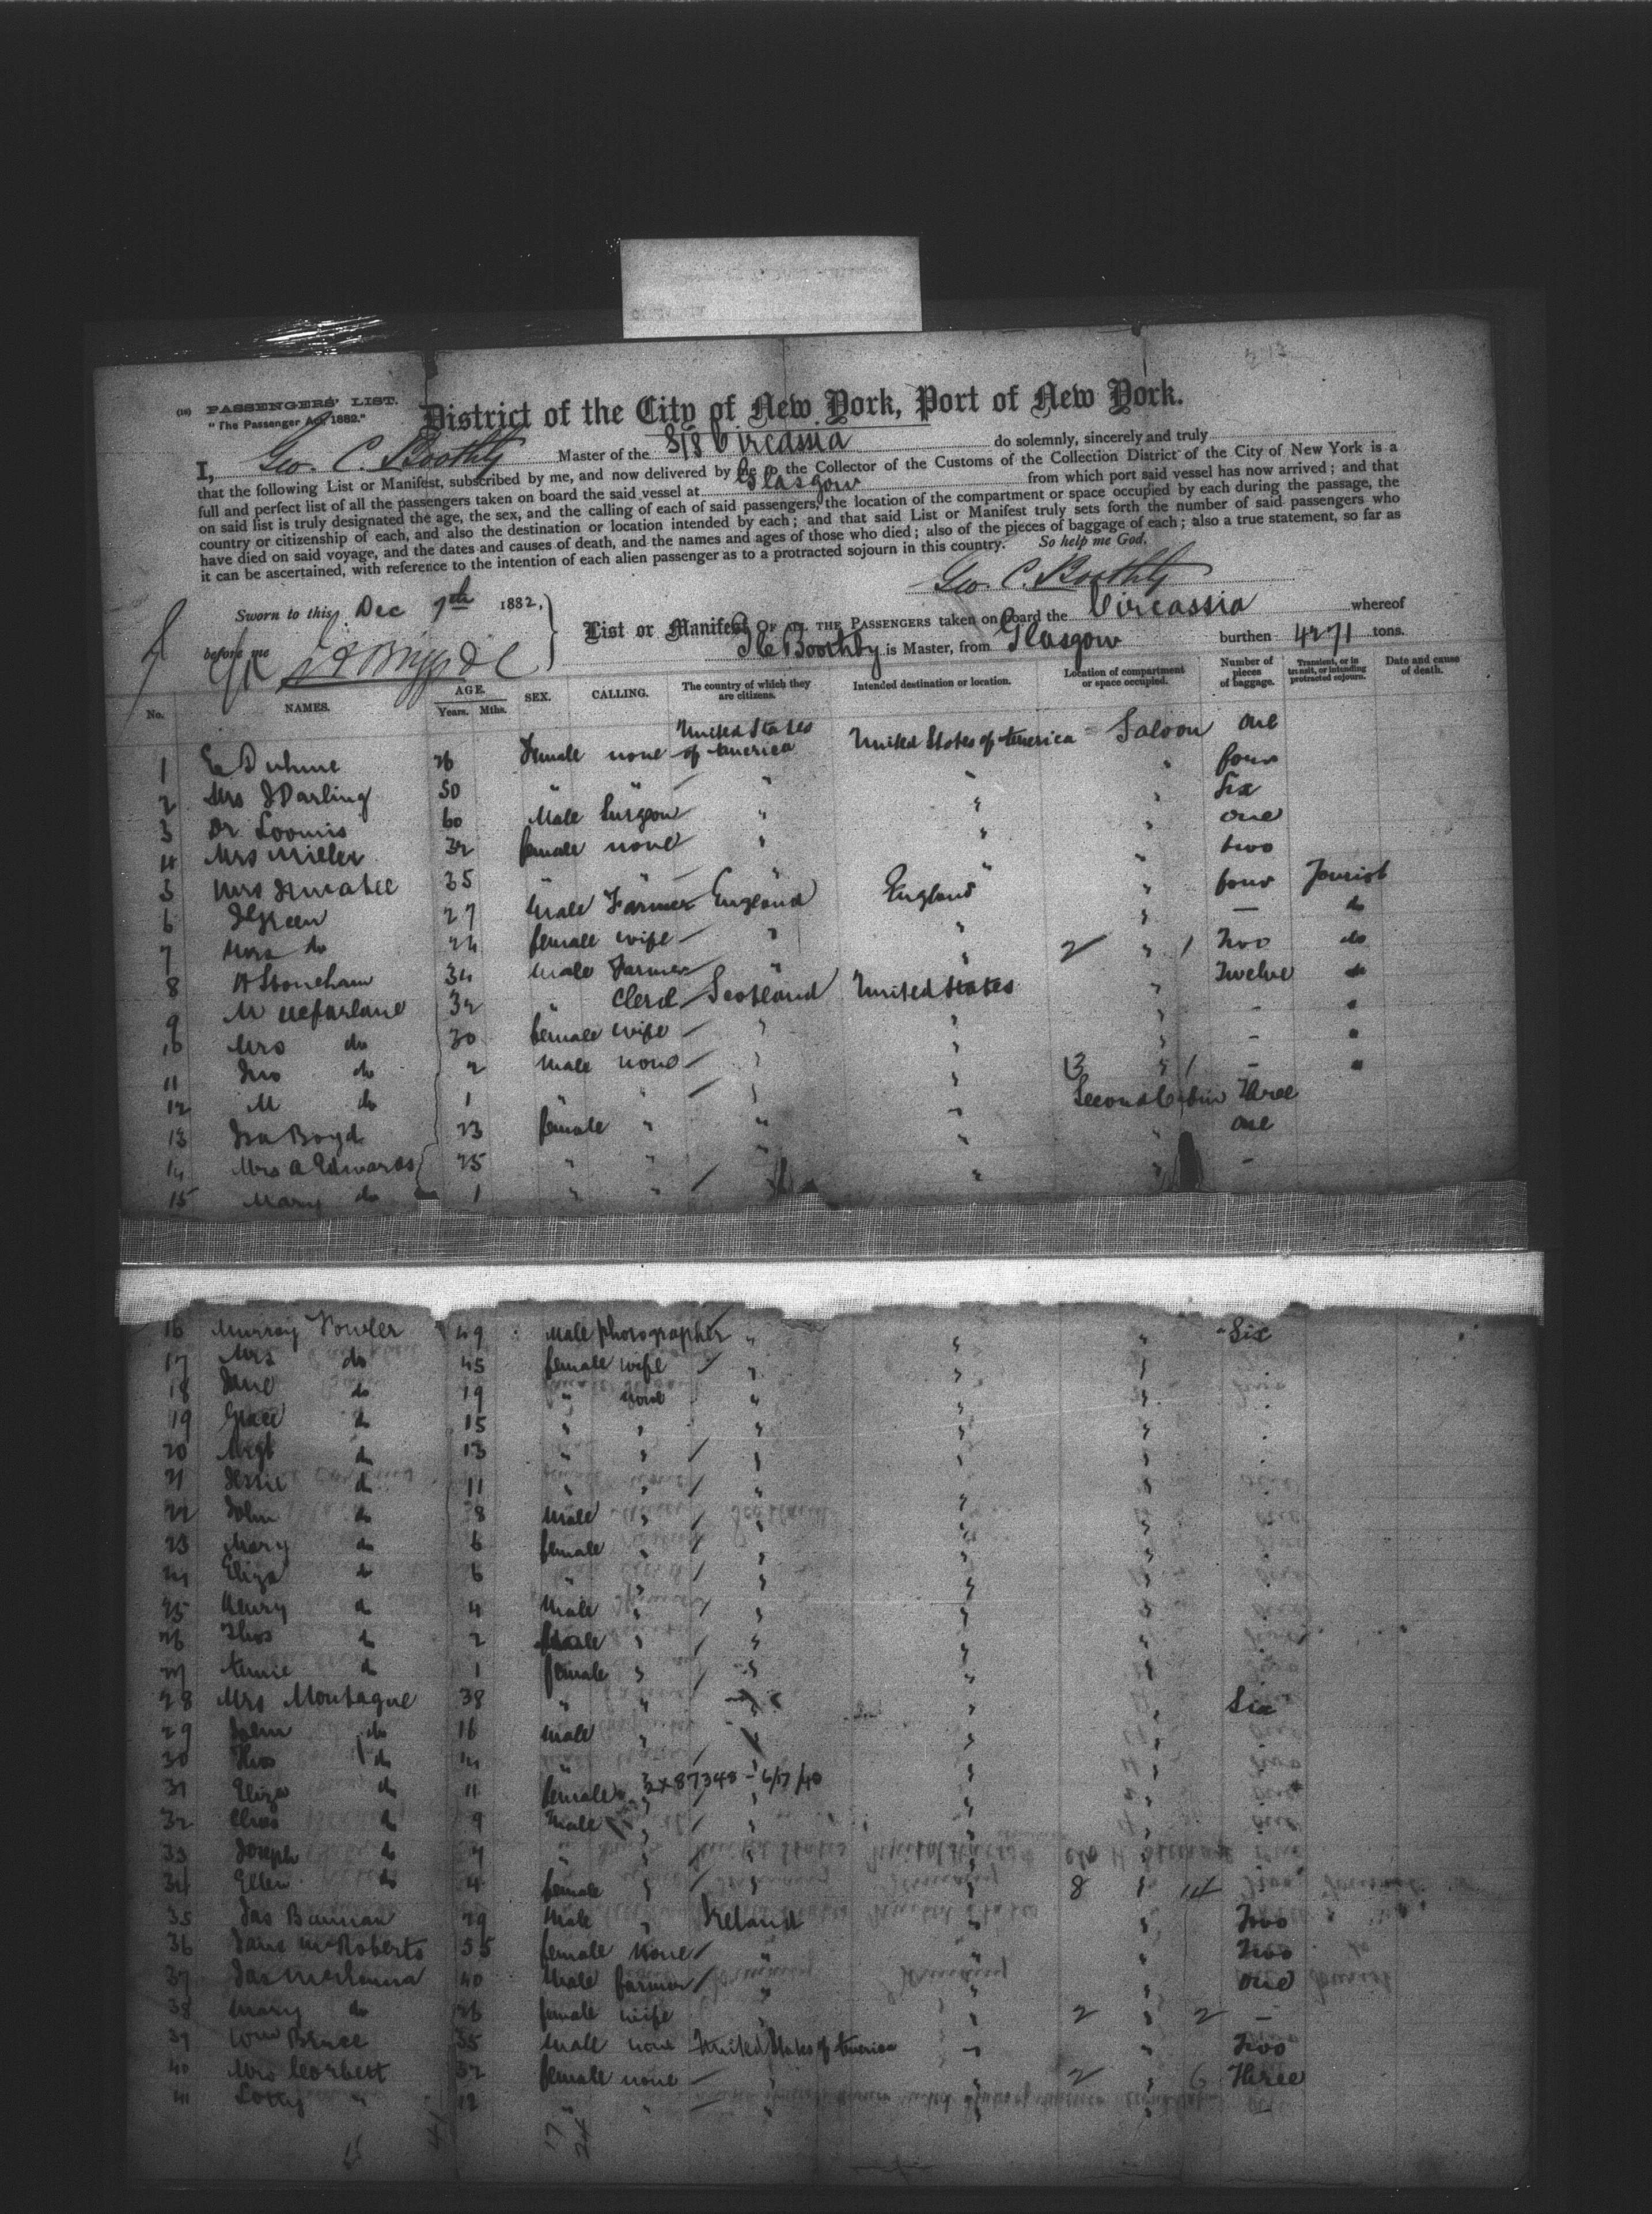 (18) PASSENGERS' LIST.
"The Passenger Act, 1882."
District of the City of New York, Port of New York.
I, Geo. C. Boothby Master of the S/S Circassia do solemnly, sincerely and truly
that the following List or Manifest, subscribed by me, and now delivered by me to the Collector of the Customs of the Collection District of the City of New York is a
full and perfect list of all the passengers taken on board the said vessel at Glasgow from which port said vessel has now arrived; and that
on said list is truly designated the age, the sex, and the calling of each of said passengers, the location of the compartment or space occupied by each during the passage, the
country or citizenship of each, and also the destination or location intended by each; and that said List or Manifest truly sets forth the number of said passengers who
have died on said voyage, and the dates and causes of death, and the names and ages of those who died; also of the pieces of baggage of each; also a true statement, so far as
it can be ascertained, with reference to the intention of each alien passenger as to a protracted sojourn in this country. So help me God.
Geo. C. Boothby
Sworn to this Dec 7th 1882,
before me
List or Manifest OF ALL THE PASSENGERS taken on board the Circassia whereof
Boothby is Master, from Glasgow burthen 4271 tons.
No. NAMES. AGE. Years. Mths. SEX. CALLING. The country of which they are citizens. Intended destination or location. Location of compartment or space occupied. Number of pieces of baggage. Transient, or in transit, or intending protracted sojourn. Date and cause of death.
1 E Duhme 26 Female none United States of America United States of America Saloon one
2 Mrs J Darling 50 " " " " " four
3 Dr Loomis 60 Male Surgeon " " " Six
4 Mrs Miller 32 female none " " " one
5 Mrs 35 " " " " two
6 J Green 27 Male Farmer England England " four Tourist
7 Mrs do 24 female wife " " " — do
8 A Stoneham 34 Male Farmer " " 2 " 1 Two do
9 M McFarlane 32 " Clerk Scotland United States " Twelve do
10 Mrs do 30 female wife " " " - "
11 Jno do 2 Male none " " " - "
12 M do 1 " " " " 13 " 1 - "
13 Isa Boyd 23 female " " " Second Cabin Three
14 Mrs A Edwards 25 " " " " " one
15 Mary do 1 " " " " -
16 Murray Fowler 49 Male photographer " " " Six
17 Mrs do 45 female wife " " "
18 Jane do 19 " none " " "
19 Grace do 15 " " " " "
20 Mrgt do 13 " " " " "
21 Jessie do 11 " " " " "
22 John do 8 Male " " " "
23 Mary do 6 female " " " "
24 Eliza do 6 " " " " "
25 Henry do 4 Male " " " "
26 Thos do 2 Male " " " "
27 Annie do 1 female " " " "
28 Mrs Montague 38 " " " " Six
29 John do 16 Male " " " "
30 Thos do 14 " " " "
31 Eliza do 11 female " 3x87348 - 6/17/40 " "
32 Chas do 9 Male " " " "
33 Joseph do 7 " " " "
34 Ellen do 4 female " " " 8 " 14
35 Jas Bannan 29 Male " Ireland " " Two
36 Jane McRoberts 55 female None " " " Two
37 Jas McKenna 40 Male farmer " " " one
38 Mary do 26 female wife " " 2 " 2 -
39 Wm Bruce 35 Male none United States of America " " Two
40 Mrs Corbett 32 female none " " 2 " 6 Three
41 Lotty " 12 " " " " " -
41 17
24